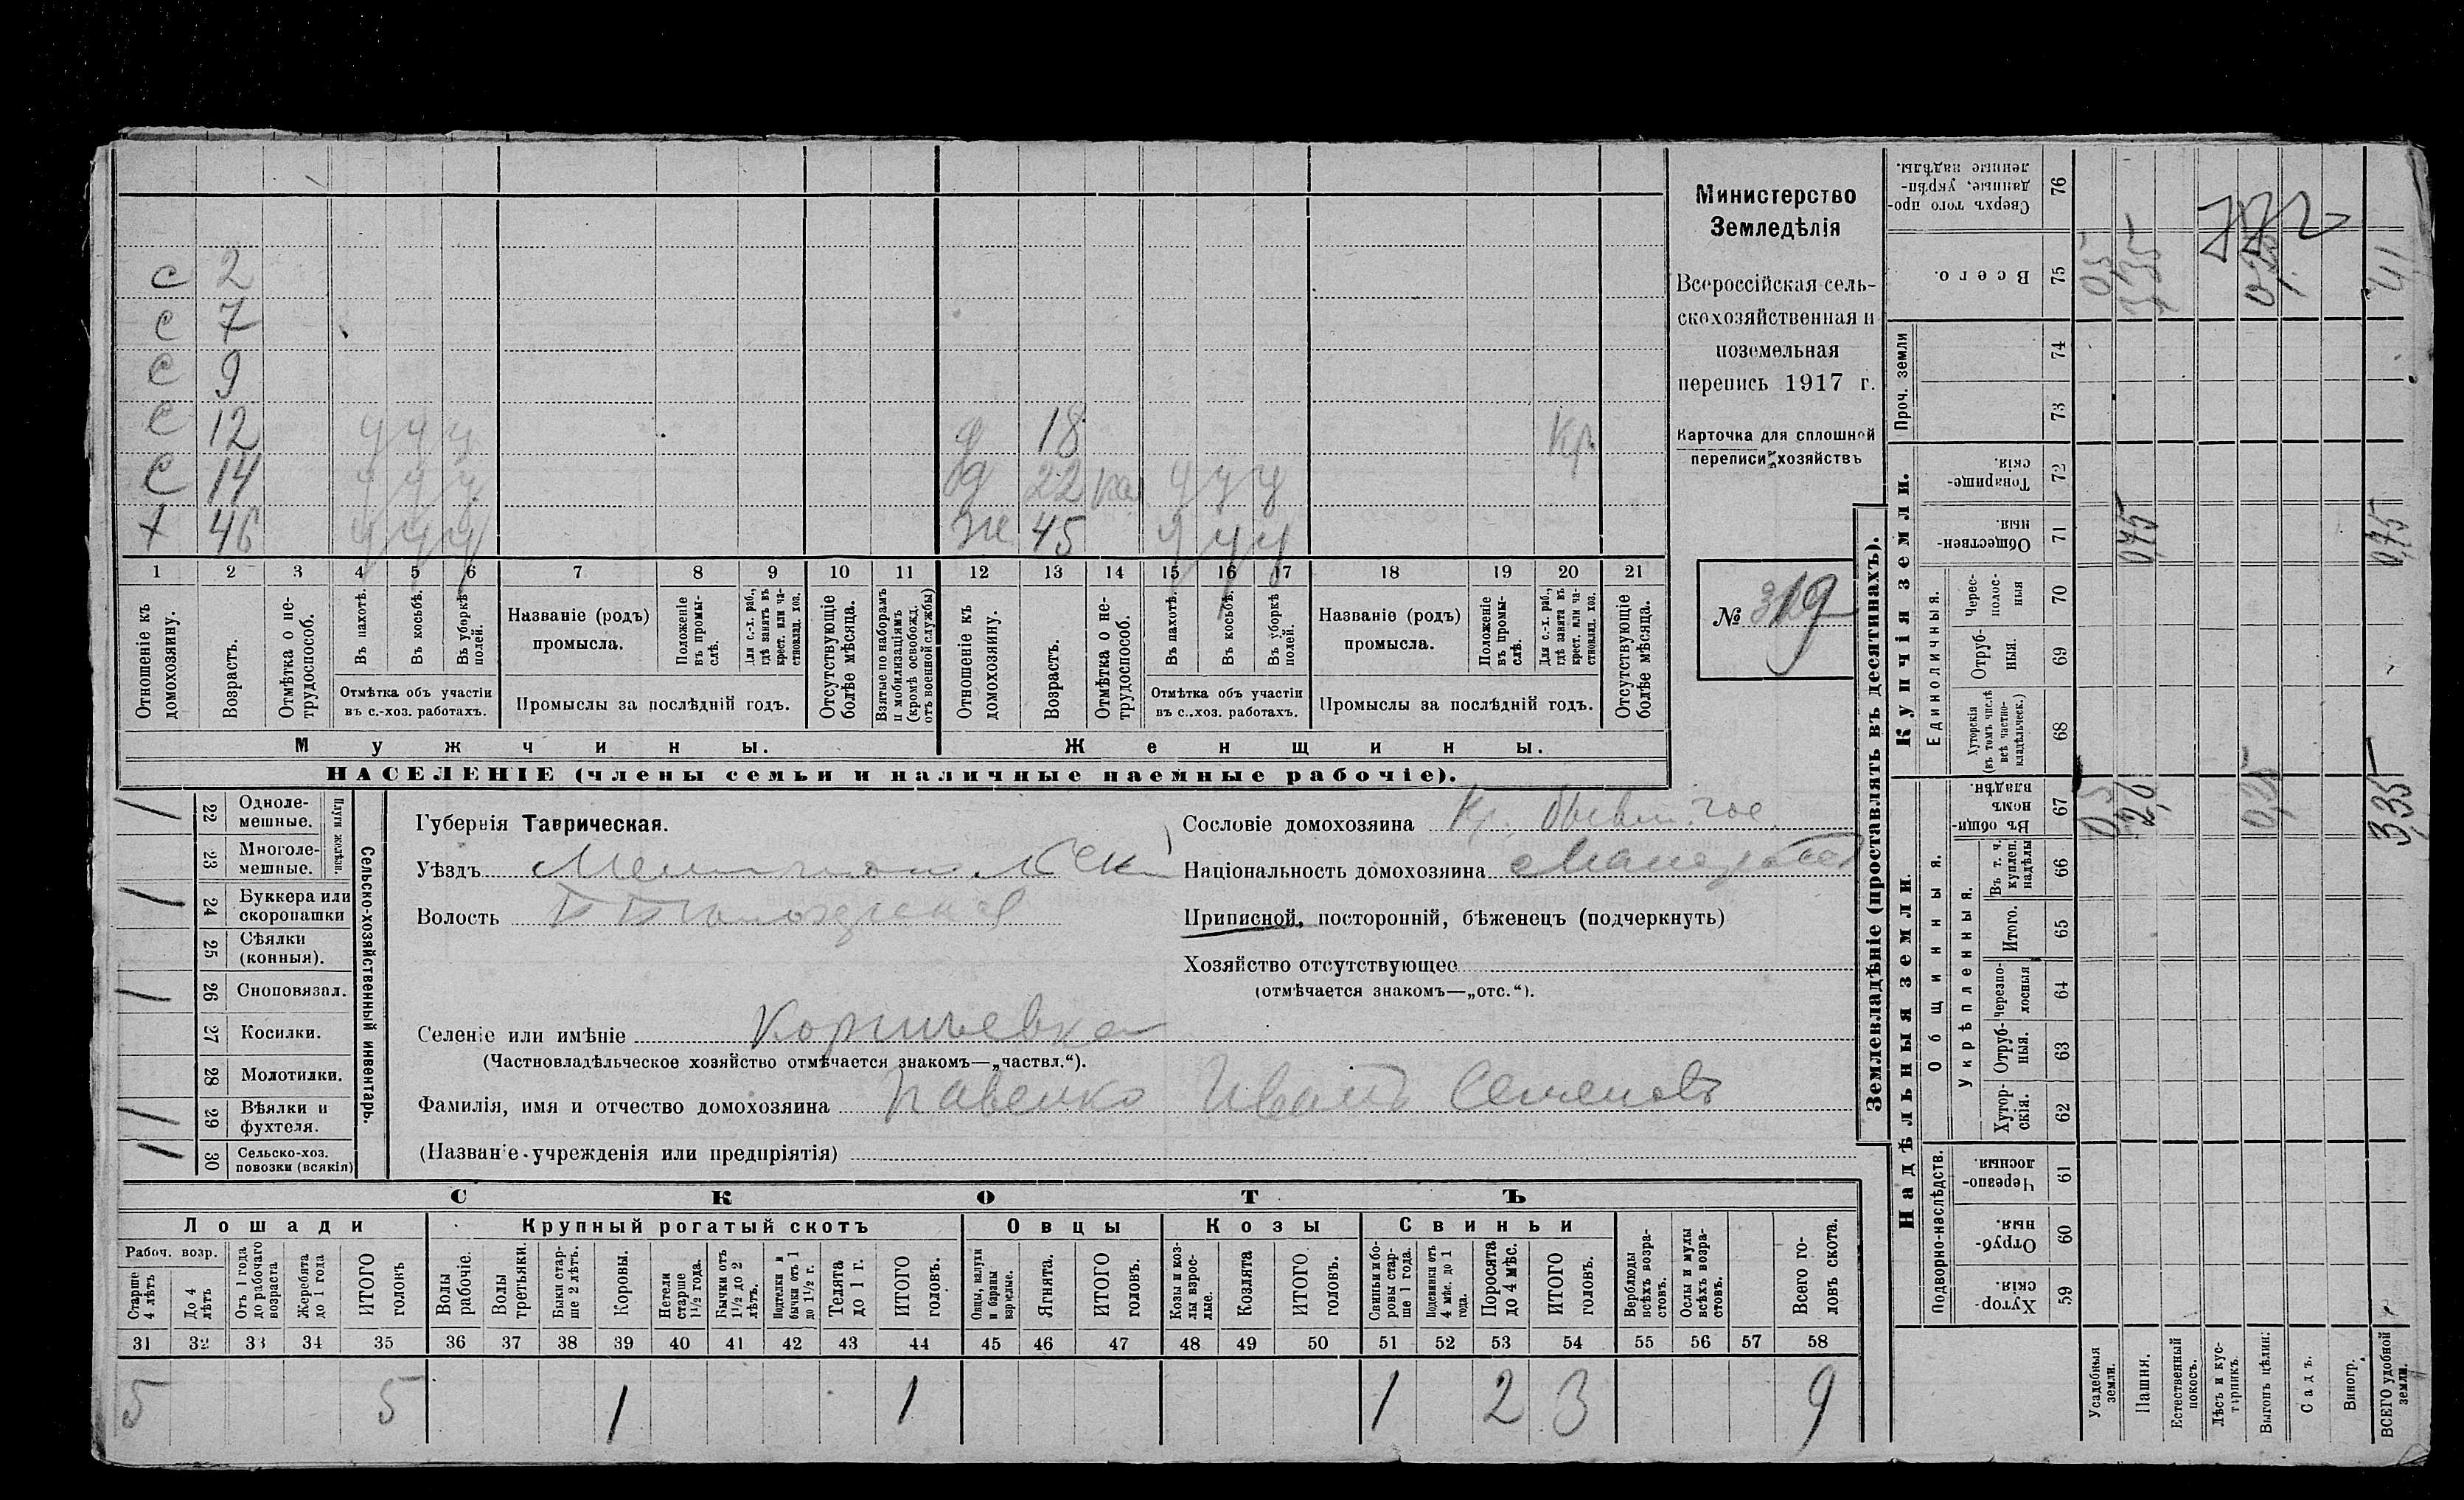 Министерство
Земледѣлія
Всероссійская сель-
скохозяйственная и
поземельная
перепись 1917 г.
Карточка для сплошной
переписи хозяйствъ
№ 319
с 2
с 7
с 9
с 12 у у у
с 14 у у у
х 46 у у у
д 18 Кр.
д 22 у у у
же 45 у у у
1 2 3 4 5 6 7 8 9 10 11 12 13 14 15 16 17 18 19 20 21
Отношеніе къ домохозяину.
Возрастъ.
Отмѣтка о не-трудоспособ.
Въ пахотѣ.
Въ косьбѣ.
Въ уборкѣ полей.
Отмѣтка объ участіи
въ с.-хоз. работахъ.
Названіе (родъ)
промысла.
Положеніе въ промы-слѣ.
Для с.-х. раб., гдѣ занятъ въ крест. или ча-стновлад. хоз.
Промыслы за послѣдній годъ.
Отсутствующіе болѣе мѣсяца.
Взятые по наборамъ и мобилизаціямъ (кромѣ освобожд. отъ военной службы)
Отношеніе къ домохозяину.
Возрастъ.
Отмѣтка о не-трудоспособ.
Въ пахотѣ.
Въ косьбѣ.
Въ уборкѣ полей.
Отмѣтка объ участіи
въ с..хоз. работахъ.
Названіе (родъ)
промысла.
Положеніе въ промы-слѣ.
Для с.-х. раб., гдѣ занята въ крест. или ча-стновлад. хоз.
Промыслы за послѣдній годъ.
Отсутствующіе болѣе мѣсяца.
Мужчины.
Женщины.
НАСЕЛЕНІЕ (члены семьи и наличные наемные рабочіе).
Сельско-хозяйственный инвентарь.
Плуги желѣзн.
/ 22 Одноле-мешные.
23 Многоле-мешные.
/ 24 Буккера или скоропашки
25 Сѣялки (конныя).
/ 26 Сноповязал.
27 Косилки.
28 Молотилки.
/ / 29 Вѣялки и фухтеля.
/ / 30 Сельско-хоз. повозки (всякія)
Губернія Таврическая.
Уѣздъ
Волость
Селеніе или имѣніе
(Частновладѣльческое хозяйство отмѣчается знакомъ—„частвл.“).
Фамилія, имя и отчество домохозяина Павенко Иванъ Семеновъ
(Названіе учрежденія или предпріятія)
Сословіе домохозяина Кр.
Національность домохозяина
Приписной, посторонній, бѣженецъ (подчеркнуть)
Хозяйство отсутствующее
(отмѣчается знакомъ—„отс.“).
СКОТЪ
Лошади
Крупный рогатый скотъ
Овцы
Козы
Свиньи
Рабоч. возр.
Старше 4 лѣтъ
До 4 лѣтъ
Отъ 1 года до рабочаго возраста
Жеребята до 1 года
ИТОГО головъ
Волы рабочіе.
Волы третьяки.
Быки стар-ше 2 лѣтъ.
Коровы.
Нетели старше 1½ года.
Бычки отъ 1½ до 2 лѣтъ.
Подтелки и бычки отъ 1 до 1½ г.
Телята до 1 г.
ИТОГО головъ.
Овцы, валухи и бараны взрослые.
Ягнята.
ИТОГО головъ.
Козы и коз-лы взрос-лые.
Козлята
ИТОГО головъ.
Свиньи и бо-ровы стар-ше 1 года.
Подсвинки отъ 4 мѣс. до 1 года.
Поросята до 4 мѣс.
ИТОГО головъ.
Верблюды всѣхъ возра-стовъ.
Ослы и мулы всѣхъ возра-стовъ.
Всего го-ловъ скота.
31 32 33 34 35 36 37 38 39 40 41 42 43 44 45 46 47 48 49 50 51 52 53 54 55 56 57 58
5 5 1 1 1 2 3 9
Землевладѣніе (проставлять въ десятинахъ).
Надѣльныя земли
Купчія земли.
Проч. земли
Подворно-наслѣдств.
Общинныя.
Укрѣпленныя.
Единоличныя.
Хутор-скія. 59
Отруб-ныя. 60
Черезпо-лосныя. 61
Хутор-скія. 62
Отруб-ныя. 63
черезпо-лосныя 64
Итого. 65
Въ т. ч. куплен. надѣлы 66
Въ общин-номъ владѣн. 67
Хуторскія (въ томъ числѣ всѣ частно-владѣльческ.) 68
Отруб-ныя. 69
Черес-полос-ныя 70
Обществен-ныя. 71
Товарище-скія. 72
73
74
Всего. 75
Сверхъ того про-данные, укрѣп-ленные надѣлы. 76
Усадебныя земли.
Пашня.
Естественный покосъ.
Лѣсъ и кус-тарникъ.
Выгонъ цѣлин:
Садъ.
Виногр.
ВСЕГО удобной земли.
0,5 2,6 0,25 3,35
0,75 0,75
0,5 3,35 0,25 4,1